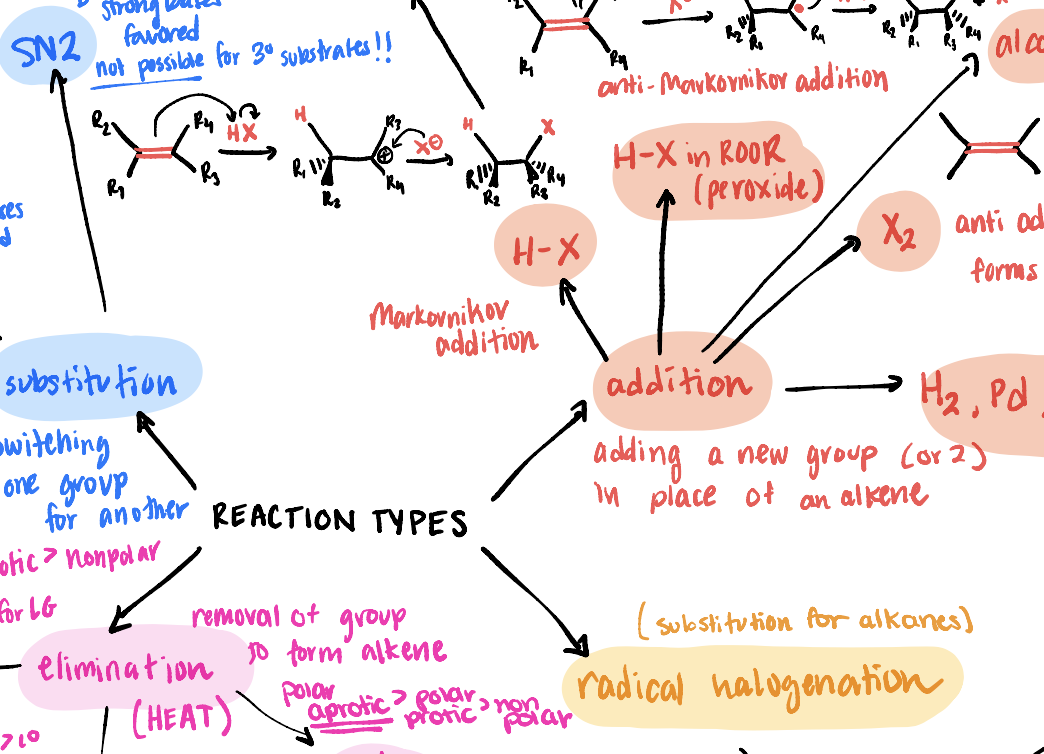 strong bases
favored
not possible for 3° substrates!!
SN2
R2
R4
R1
R3
HX
H
R3
R1
R2
R4
X⊖
H
X
R1
R2
R3
R4
R1
R4
R2
R1
R4
R1
R3
R4
anti-Markovnikov addition
alco
H-X in ROOR
(peroxide)
X2
anti ad
forms
H-X
Markovnikov
addition
addition
H2, Pd,
adding a new group (or 2)
in place of an alkene
substitution
switching
one group
for another
REACTION TYPES
otic > nonpolar
for LG
removal of group
to form alkene
elimination
(HEAT)
polar
aprotic > polar
protic > non
polar
> 1°
(substitution for alkanes)
radical halogenation